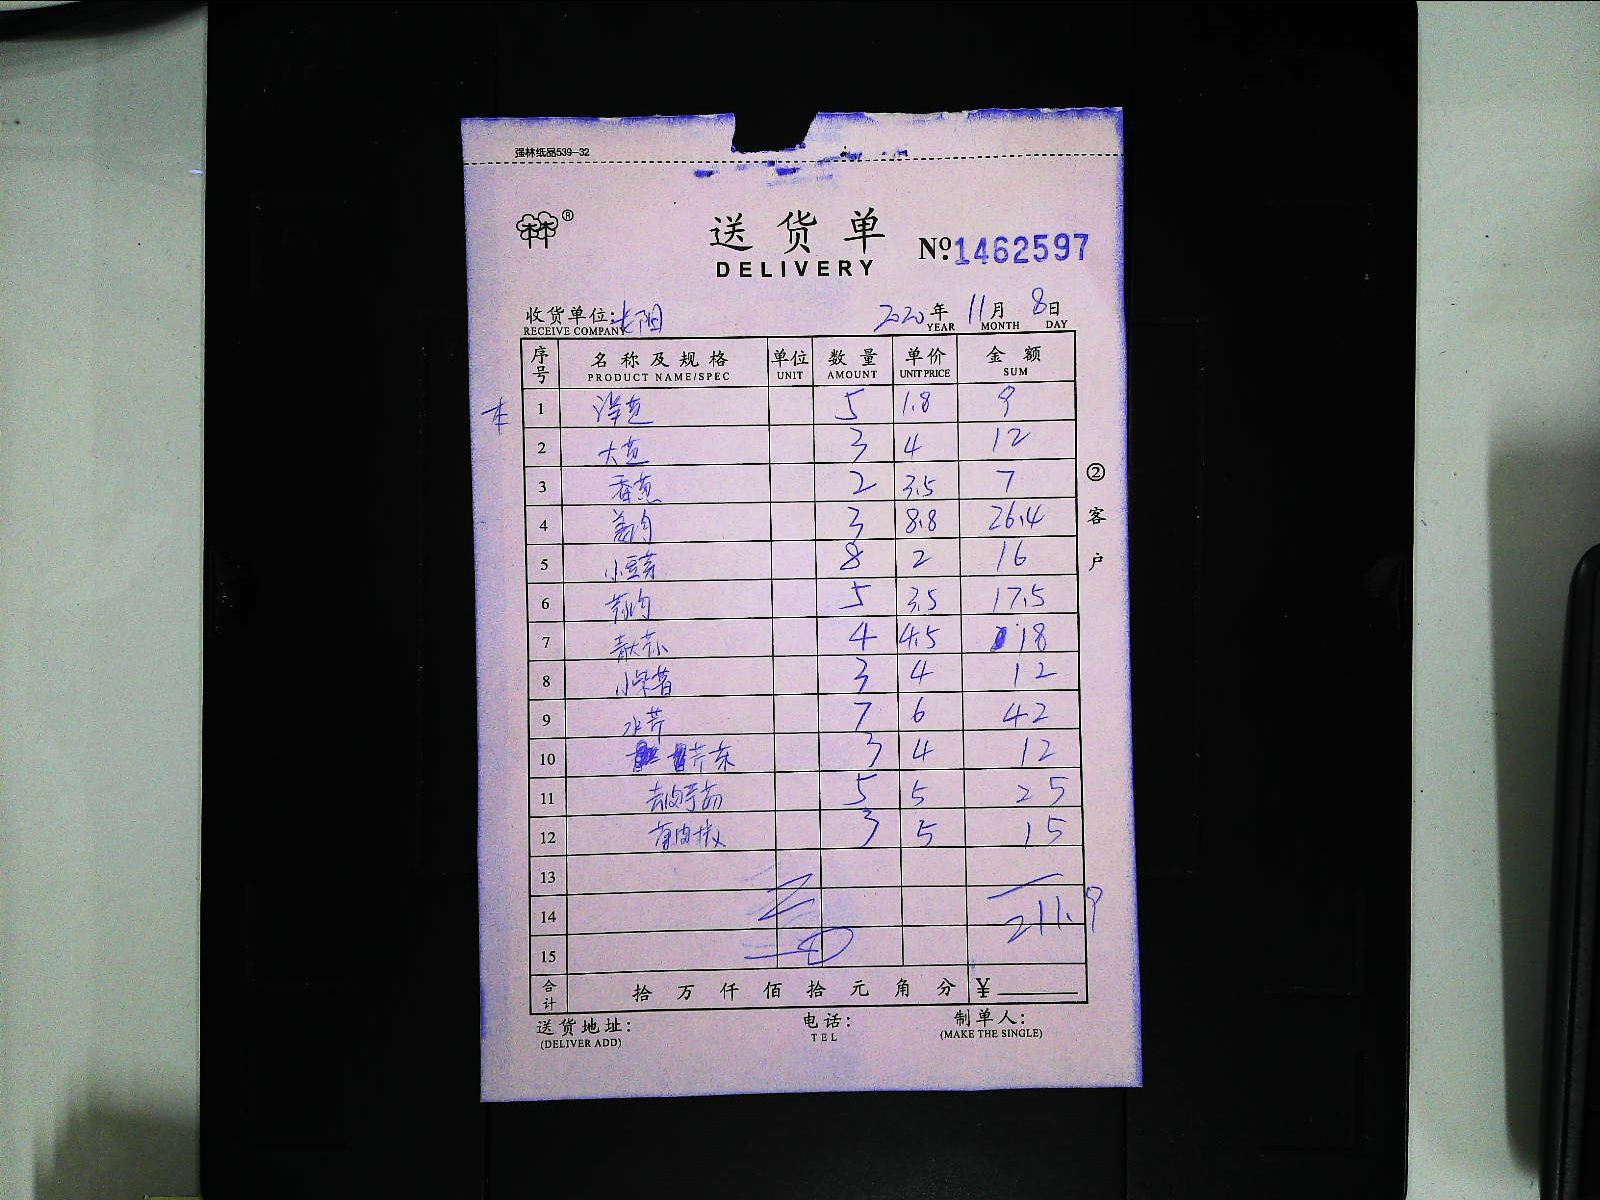 强林纸品539-32
林®
送货单 №1462597
DELIVERY
收货单位: 长阳 2020年 11月 8日
RECEIVE COMPANY YEAR MONTH DAY
序号 名称及规格 单位 数量 单价 金额
PRODUCT NAME/SPEC UNIT AMOUNT UNIT PRICE SUM
本 1 洋葱 5 1.8 9
2 大葱 3 4 12
3 香葱 2 3.5 7
4 姜肉 3 8.8 26.4
5 小豆芽 8 2 16
6 5 3.5 17.5
7 4 4.5 18
8 3 4 12
9 水芹 7 6 42
10 3 4 12
11 5 5 25
12 3 5 15
13
14 211.9
15
合计 拾 万 仟 佰 拾 元 角 分 ¥
送货地址: 电话: 制单人:
(DELIVER ADD) TEL (MAKE THE SINGLE)
②客户